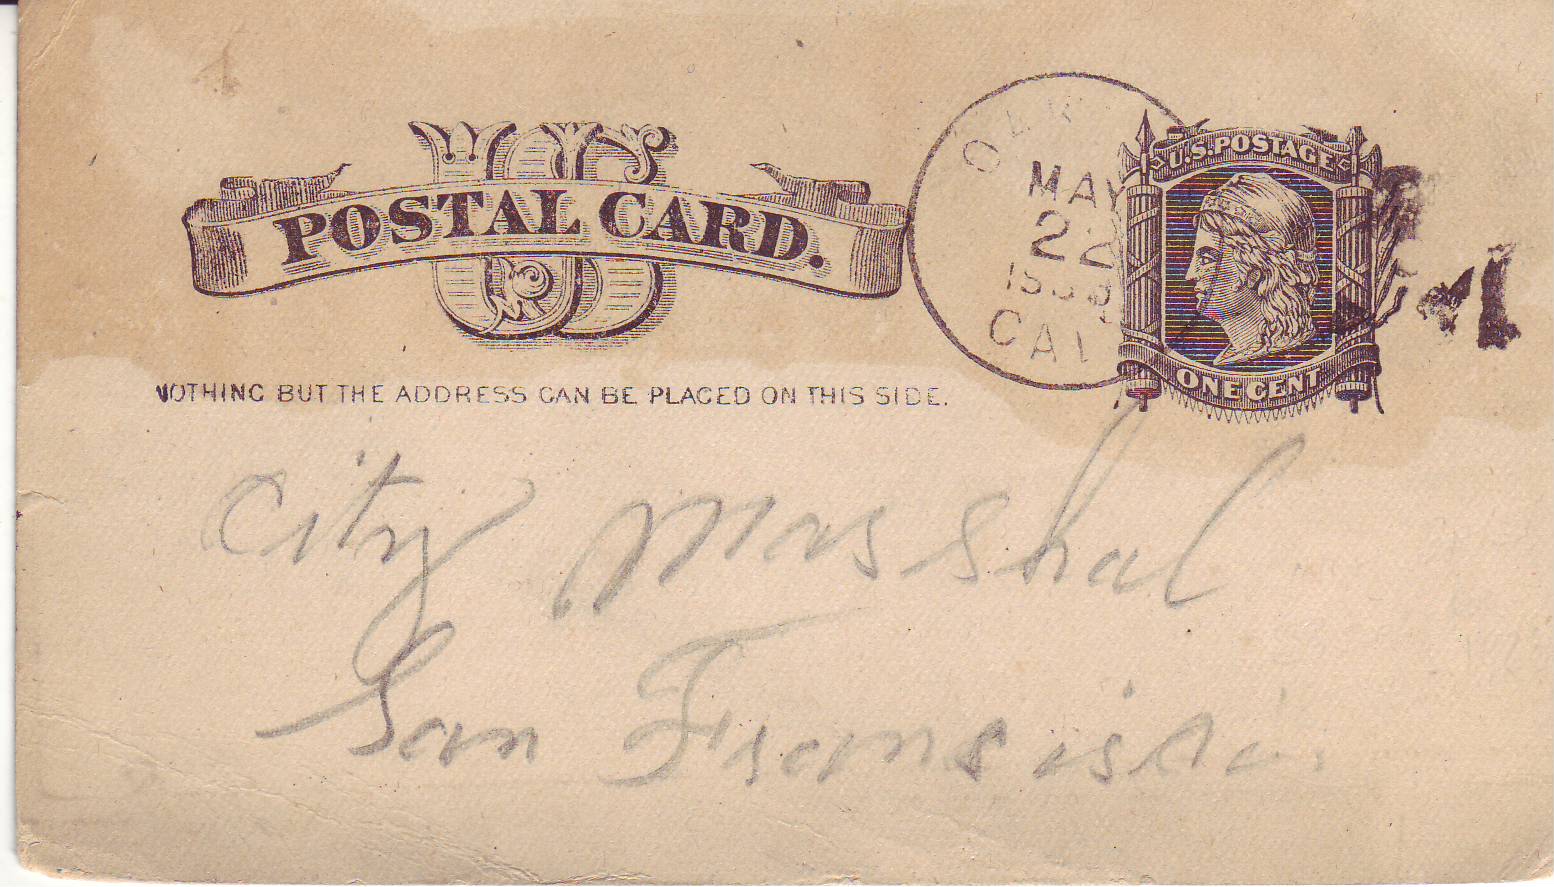 US
POSTAL CARD.
MAY
22
CAL
U.S. POSTAGE
ONE CENT
NOTHING BUT THE ADDRESS CAN BE PLACED ON THIS SIDE.
City Marshal
San Fransisco.